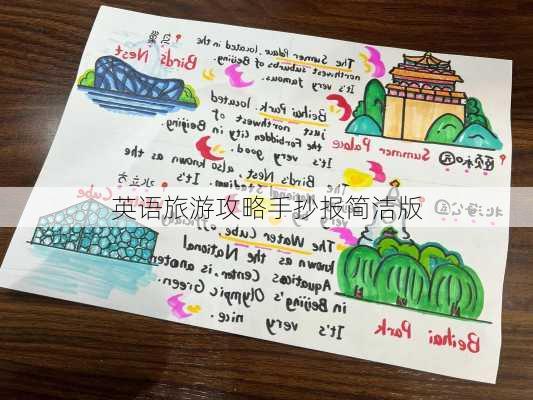 鸟巢
Birds Nest
The Summer Palace. located in the
northwest suburbs of Beijing.
It's very famous.
Summer Palace
颐和园
Beihai Park. located
just northwest of
the Forbidden city in Beijing.
It's very good.
The Birds Nest. also known as the
Stadium. It's
北海公园
Beihai Park
水立方
Cube
英语旅游攻略手抄报简洁版
The Water Cube.
known as the National
Aquatics Center. is another
in Beijing's Olympic Green.
It's very nice.